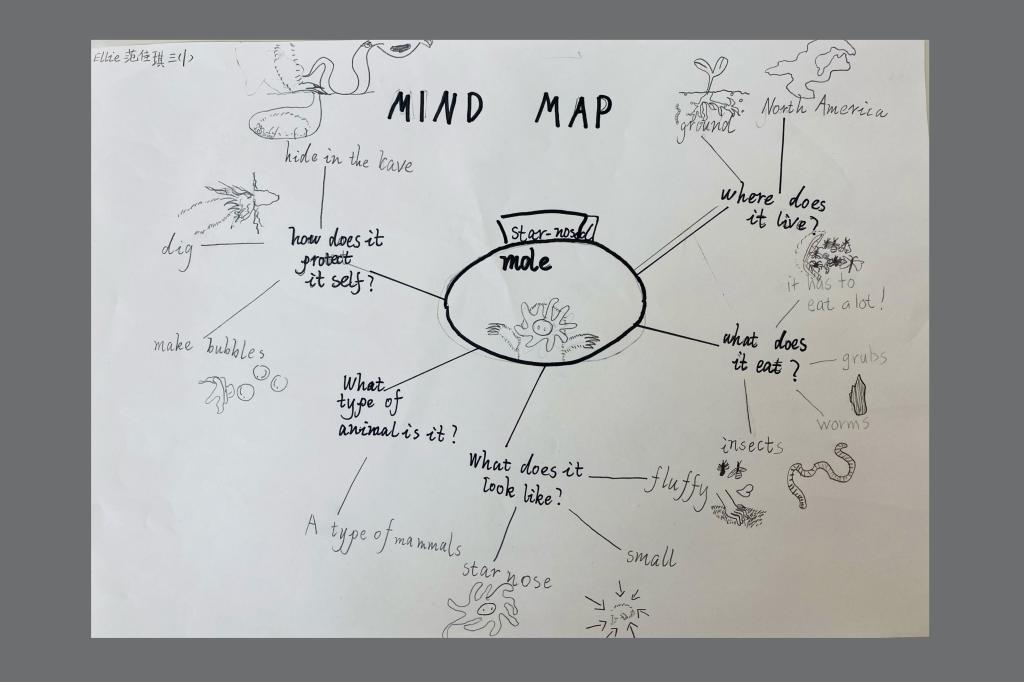 Ellie 范佳琪 三(1)
MIND MAP
hide in the kave
dig
make bubbles
how does it
protect
it self?
star-nosed
mole
ground
North America
where does
it live?
it has to
eat a lot!
what does
it eat?
grubs
worms
insects
What
type of
animal is it?
A type of mammals
What does it
look like?
fluffy
small
star nose